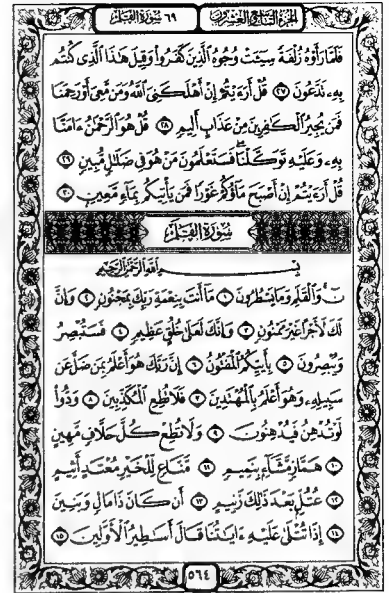 الجزء التاسع والعشرون
٦٩ سورة القلم
فَلَمَّا رَأَوْهُ زُلْفَةً سِيٓـَٔتْ وُجُوهُ ٱلَّذِينَ كَفَرُوا۟ وَقِيلَ هَٰذَا ٱلَّذِى كُنتُم
بِهِۦ تَدَّعُونَ ٢٧ قُلْ أَرَءَيْتُمْ إِنْ أَهْلَكَنِىَ ٱللَّهُ وَمَن مَّعِىَ أَوْ رَحِمَنَا
فَمَن يُجِيرُ ٱلْكَٰفِرِينَ مِنْ عَذَابٍ أَلِيمٍ ٢٨ قُلْ هُوَ ٱلرَّحْمَٰنُ ءَامَنَّا
بِهِۦ وَعَلَيْهِ تَوَكَّلْنَا فَسَتَعْلَمُونَ مَنْ هُوَ فِى ضَلَٰلٍ مُّبِينٍ ٢٩
قُلْ أَرَءَيْتُمْ إِنْ أَصْبَحَ مَآؤُكُمْ غَوْرًا فَمَن يَأْتِيكُم بِمَآءٍ مَّعِينٍ ٣٠
سُورَةُ القَلَمِ
بِسْمِ ٱللَّهِ ٱلرَّحْمَٰنِ ٱلرَّحِيمِ
نٓ وَٱلْقَلَمِ وَمَا يَسْطُرُونَ ١ مَآ أَنتَ بِنِعْمَةِ رَبِّكَ بِمَجْنُونٍ ٢ وَإِنَّ
لَكَ لَأَجْرًا غَيْرَ مَمْنُونٍ ٣ وَإِنَّكَ لَعَلَىٰ خُلُقٍ عَظِيمٍ ٤ فَسَتُبْصِرُ
وَيُبْصِرُونَ ٥ بِأَييِّكُمُ ٱلْمَفْتُونُ ٦ إِنَّ رَبَّكَ هُوَ أَعْلَمُ بِمَن ضَلَّ عَن
سَبِيلِهِۦ وَهُوَ أَعْلَمُ بِٱلْمُهْتَدِينَ ٧ فَلَا تُطِعِ ٱلْمُكَذِّبِينَ ٨ وَدُّوا۟
لَوْ تُدْهِنُ فَيُدْهِنُونَ ٩ وَلَا تُطِعْ كُلَّ حَلَّافٍ مَّهِينٍ
١٠ هَمَّازٍ مَّشَّآءٍۭ بِنَمِيمٍ ١١ مَّنَّاعٍ لِّلْخَيْرِ مُعْتَدٍ أَثِيمٍ
١٢ عُتُلٍّۭ بَعْدَ ذَٰلِكَ زَنِيمٍ ١٣ أَن كَانَ ذَا مَالٍ وَبَنِينَ
١٤ إِذَا تُتْلَىٰ عَلَيْهِ ءَايَٰتُنَا قَالَ أَسَٰطِيرُ ٱلْأَوَّلِينَ ١٥
٥٦٤